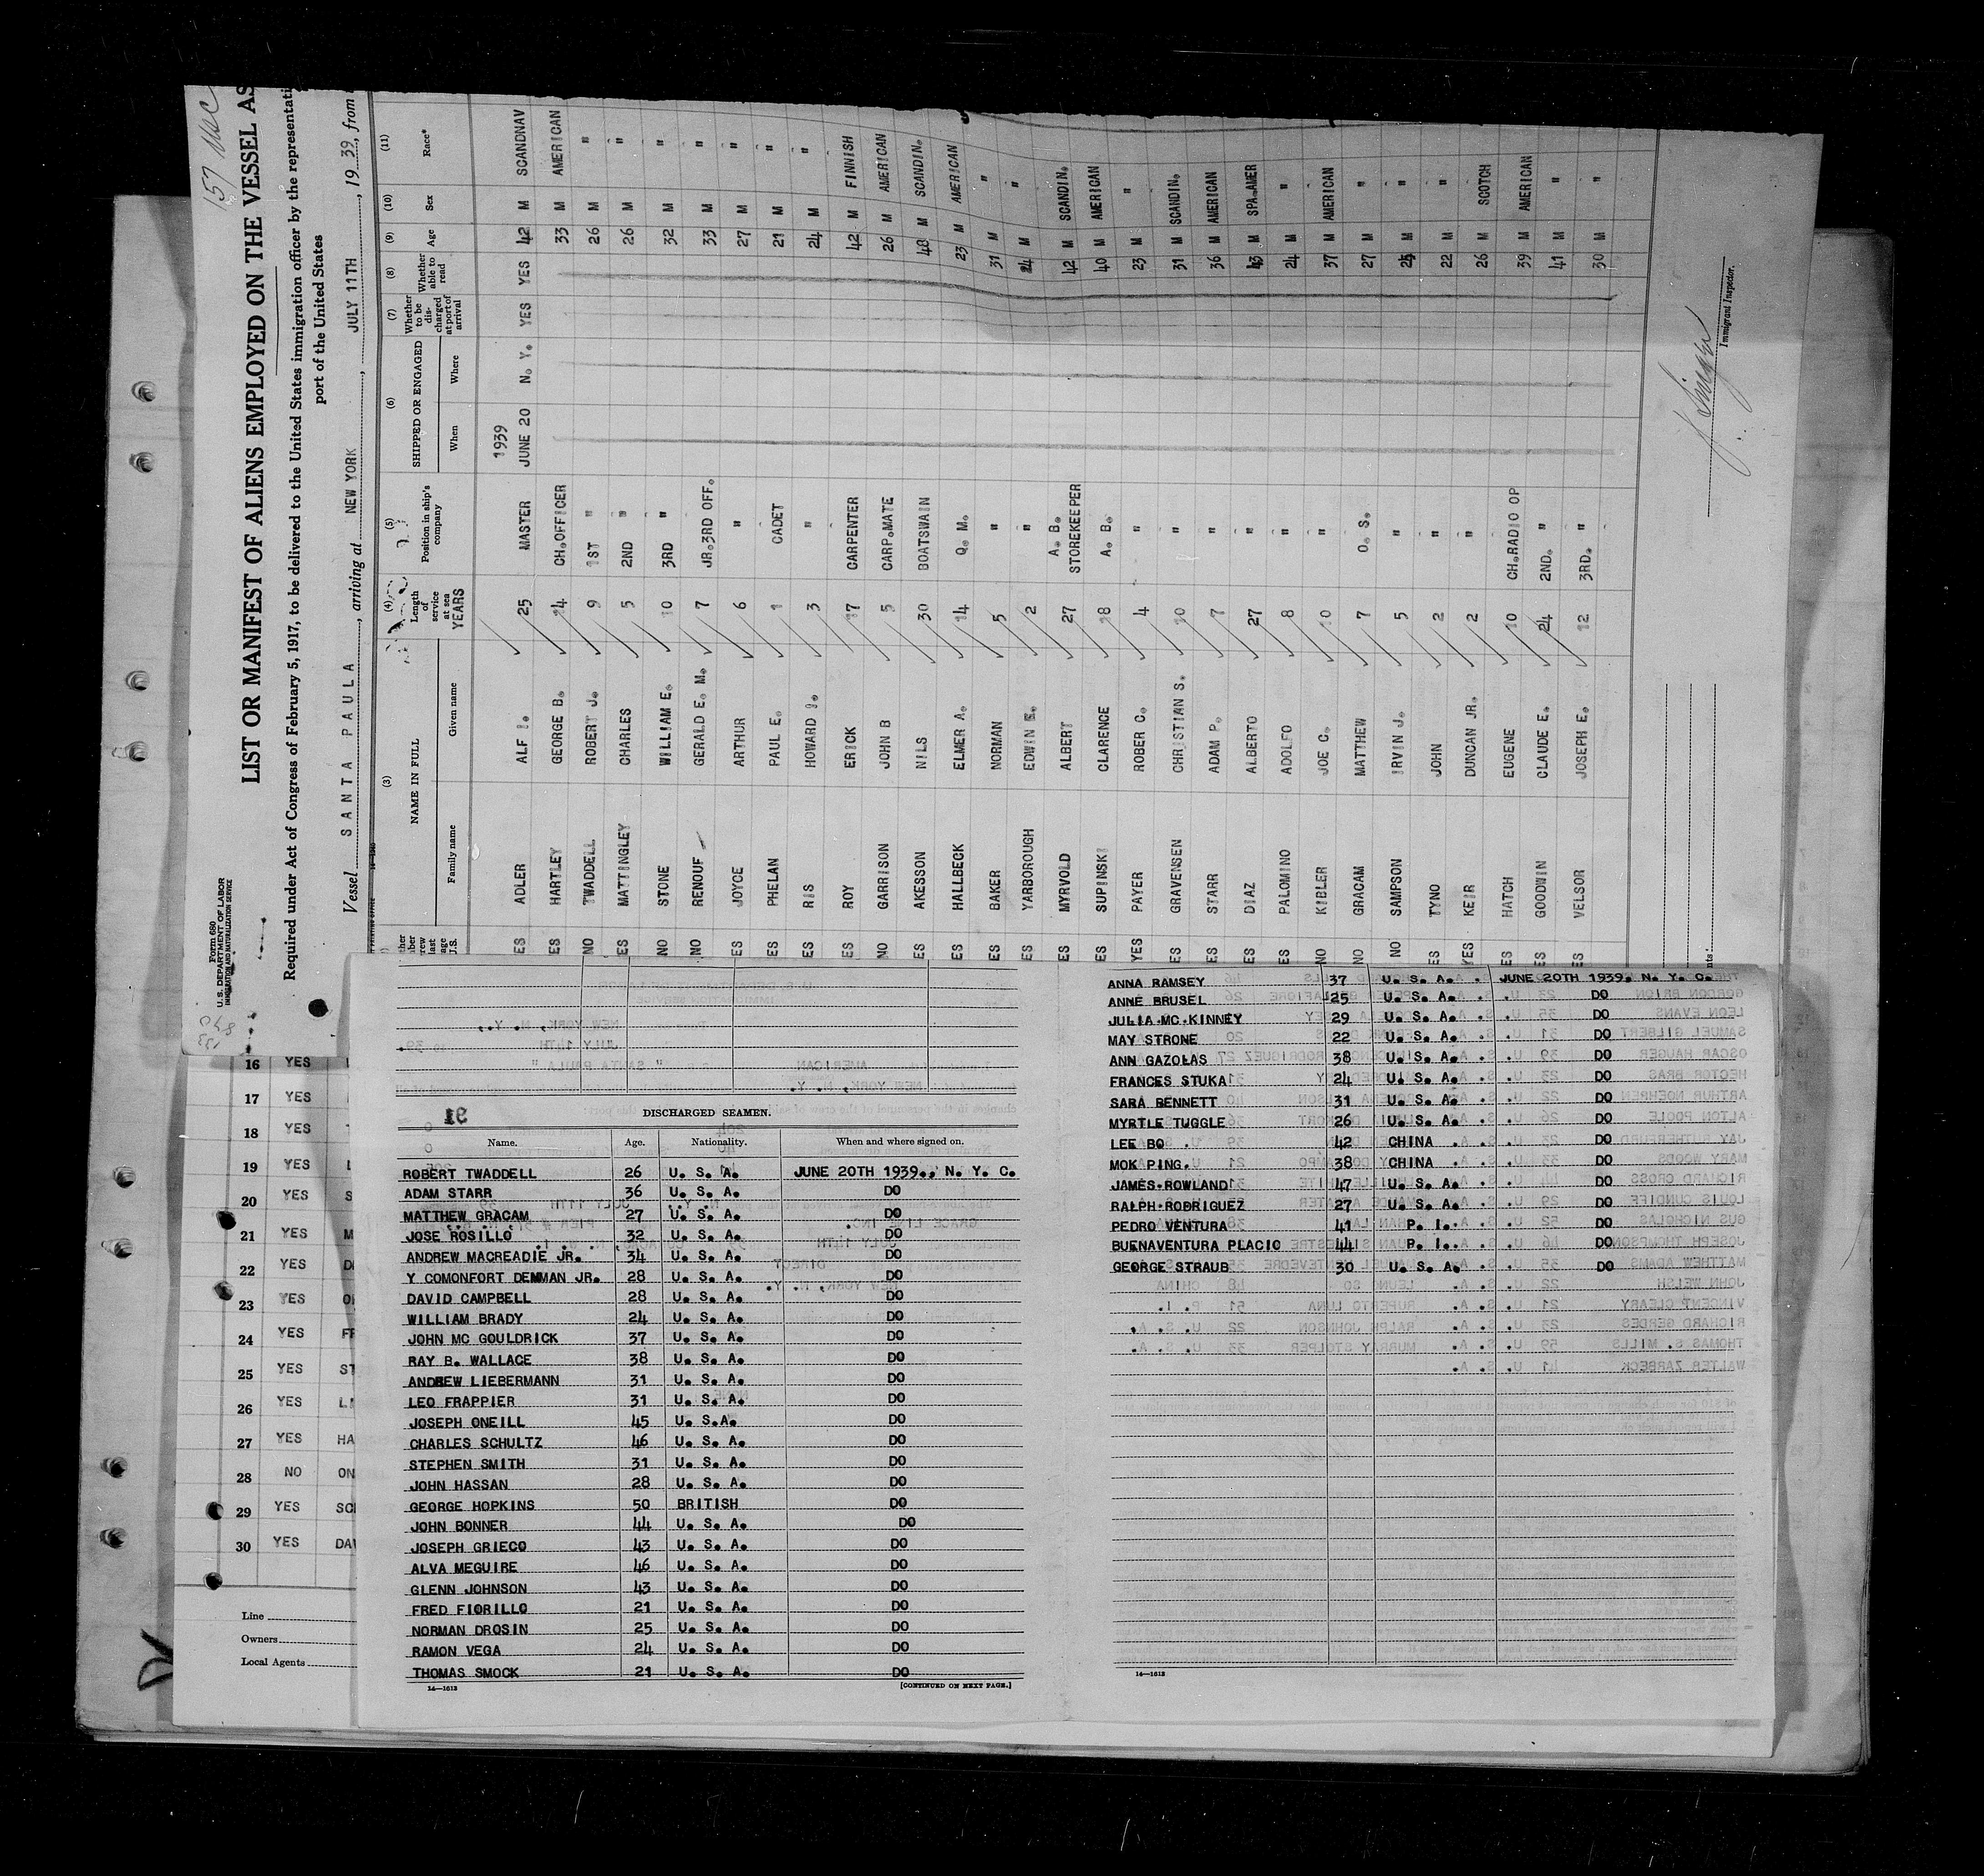 157
Form 680
U. S. DEPARTMENT OF LABOR
IMMIGRATION AND NATURALIZATION SERVICE
LIST OR MANIFEST OF ALIENS EMPLOYED ON THE VESSEL AS
Required under Act of Congress of February 5, 1917, to be delivered to the United States immigration officer by the representati
port of the United States
Vessel SANTA PAULA, arriving at NEW YORK, JULY 11TH, 19 39, from
(3) (4) (5) (6) (7) (8) (9) (10) (11)
NAME IN FULL Length of service at sea Position in ship's company SHIPPED OR ENGAGED Whether to be discharged at port of arrival Whether able to read Age Sex Race*
Family name Given name YEARS When Where
1939
ES ADLER ALF I. 25 MASTER JUNE 20 N. Y. YES YES 42 M SCANDNAV
ES HARTLEY GEORGE B. 14 CH.OFFICER 33 M AMERICAN
NO TWADDELL ROBERT J. 9 1ST " 26 M "
ES MATTINGLEY CHARLES 5 2ND " 26 M "
NO STONE WILLIAM E. 10 3RD " 32 M "
NO RENOUF GERALD E. M. 7 JR.3RD OFF. 33 M "
ES JOYCE ARTHUR 6 " 27 M "
ES PHELAN PAUL E. 1 CADET 21 M "
ES RIS HOWARD I. 3 " 24 M "
ES ROY ERICK 17 CARPENTER 42 M FINNISH
NO GARRISON JOHN B 5 CARP.MATE 26 M AMERICAN
ES AKESSON NILS 30 BOATSWAIN 48 M SCANDIN.
ES HALLBECK ELMER A. 14 Q. M. 23 M AMERICAN
ES BAKER NORMAN 5 " 31 M "
ES YARBOROUGH EDWIN E. 2 " 24 M "
ES MYRVOLD ALBERT 27 A. B. STOREKEEPER 42 M SCANDIN.
ES SUPINSKI CLARENCE 18 A. B. 40 M AMERICAN
YES PAYER ROBER C. 4 " 23 M "
ES GRAVENSEN CHRISTIAN S. 10 " 31 M SCANDIN.
ES STARR ADAM P. 7 " 36 M AMERICAN
ES DIAZ ALBERTO 27 " 43 M SPA.AMER
ES PALOMINO ADOLFO 8 " 24 M "
NO KIBLER JOE C. 10 " 37 M AMERICAN
NO GRACAM MATTHEW 7 O. S. 27 M "
NO SAMPSON IRVIN J. 5 " M "
ES TYNO JOHN 2 " 22 M "
YES KEIR DUNCAN JR. 2 " 26 M SCOTCH
ES HATCH EUGENE 10 CH.RADIO OP 39 M AMERICAN
ES GOODWIN CLAUDE E. 24 2ND. " 41 M "
ES VELSOR JOSEPH E. 12 3RD. " 30 M "
Immigrant Inspector.
16 YES
17 YES
18 YES
19 YES
20 YES
21 YES
22 YES
23 YES
24 YES
25 YES ST
26 YES
27 YES HA
28 NO ON
29 YES
30 YES DA
Line
Owners
Local Agents
DISCHARGED SEAMEN.
Name. Age. Nationality. When and where signed on.
ROBERT TWADDELL 26 U. S. A. JUNE 20TH 1939., N. Y. C.
ADAM STARR 36 U. S. A. DO
MATTHEW GRACAM 27 U. S. A. DO
JOSE ROSILLO 32 U. S. A. DO
ANDREW MACREADIE JR. 34 U. S. A. DO
Y COMONFORT DEMMAN JR. 28 U. S. A. DO
DAVID CAMPBELL 28 U. S. A. DO
WILLIAM BRADY 24 U. S. A. DO
JOHN MC GOULDRICK 37 U. S. A. DO
RAY B. WALLACE 38 U. S. A. DO
ANDREW LIEBERMANN 31 U. S. A. DO
LEO FRAPPIER 31 U. S. A. DO
JOSEPH ONEILL 45 U. S.A. DO
CHARLES SCHULTZ 46 U. S. A. DO
STEPHEN SMITH 31 U. S. A. DO
JOHN HASSAN 28 U. S. A. DO
GEORGE HOPKINS 50 BRITISH DO
JOHN BONNER 44 U. S. A. DO
JOSEPH GRIECO 43 U. S. A. DO
ALVA MEGUIRE 46 U. S. A. DO
GLENN JOHNSON 43 U. S. A. DO
FRED FIORILLO 21 U. S. A. DO
NORMAN DROSIN 25 U. S. A. DO
RAMON VEGA 24 U. S. A. DO
THOMAS SMOCK 21 U. S. A. DO
14—1613 [CONTINUED ON NEXT PAGE.]
ANNA RAMSEY 37 U. S. A. JUNE 20TH 1939. N. Y. C.
ANNE BRUSEL 25 U. S. A. DO
JULIA MC KINNEY 29 U. S. A. DO
MAY STRONE 22 U. S. A. DO
ANN GAZOLAS 38 U. S. A. DO
FRANCES STUKA 24 U. S. A. DO
SARA BENNETT 31 U. S. A. DO
MYRTLE TUGGLE 26 U. S. A. DO
LEE BO 42 CHINA DO
MOK PING 38 CHINA DO
JAMES ROWLAND 47 U. S. A. DO
RALPH RODRIGUEZ 27 U. S. A. DO
PEDRO VENTURA 41 P. I. DO
BUENAVENTURA PLACIO 44 P. I. DO
GEORGE STRAUB 30 U. S. A. DO
14—1613